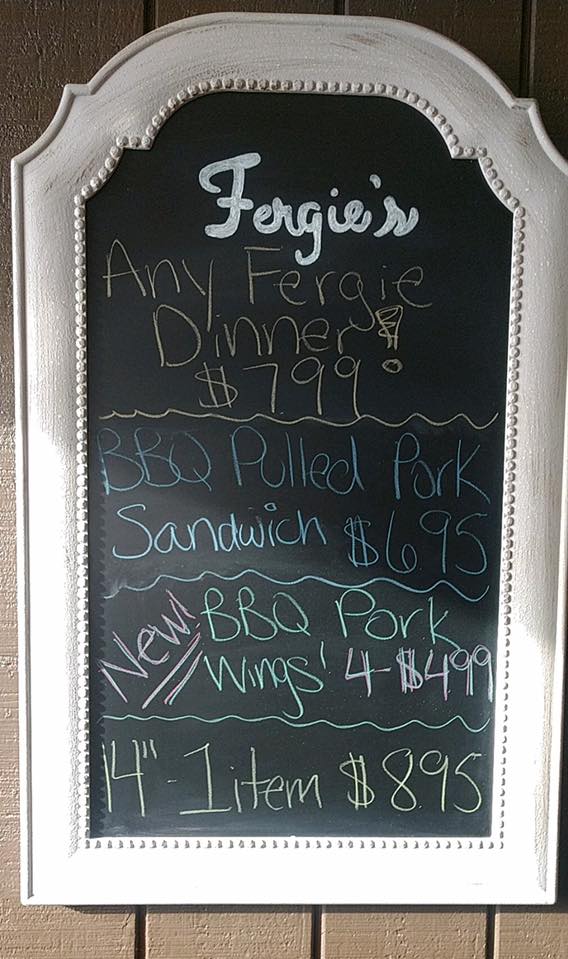 Fergie's
Any Fergie
Dinner!
$799
BBQ Pulled Pork
Sandwich $695
New! BBQ Pork
Wings' 4-$499
14"-1 item $895